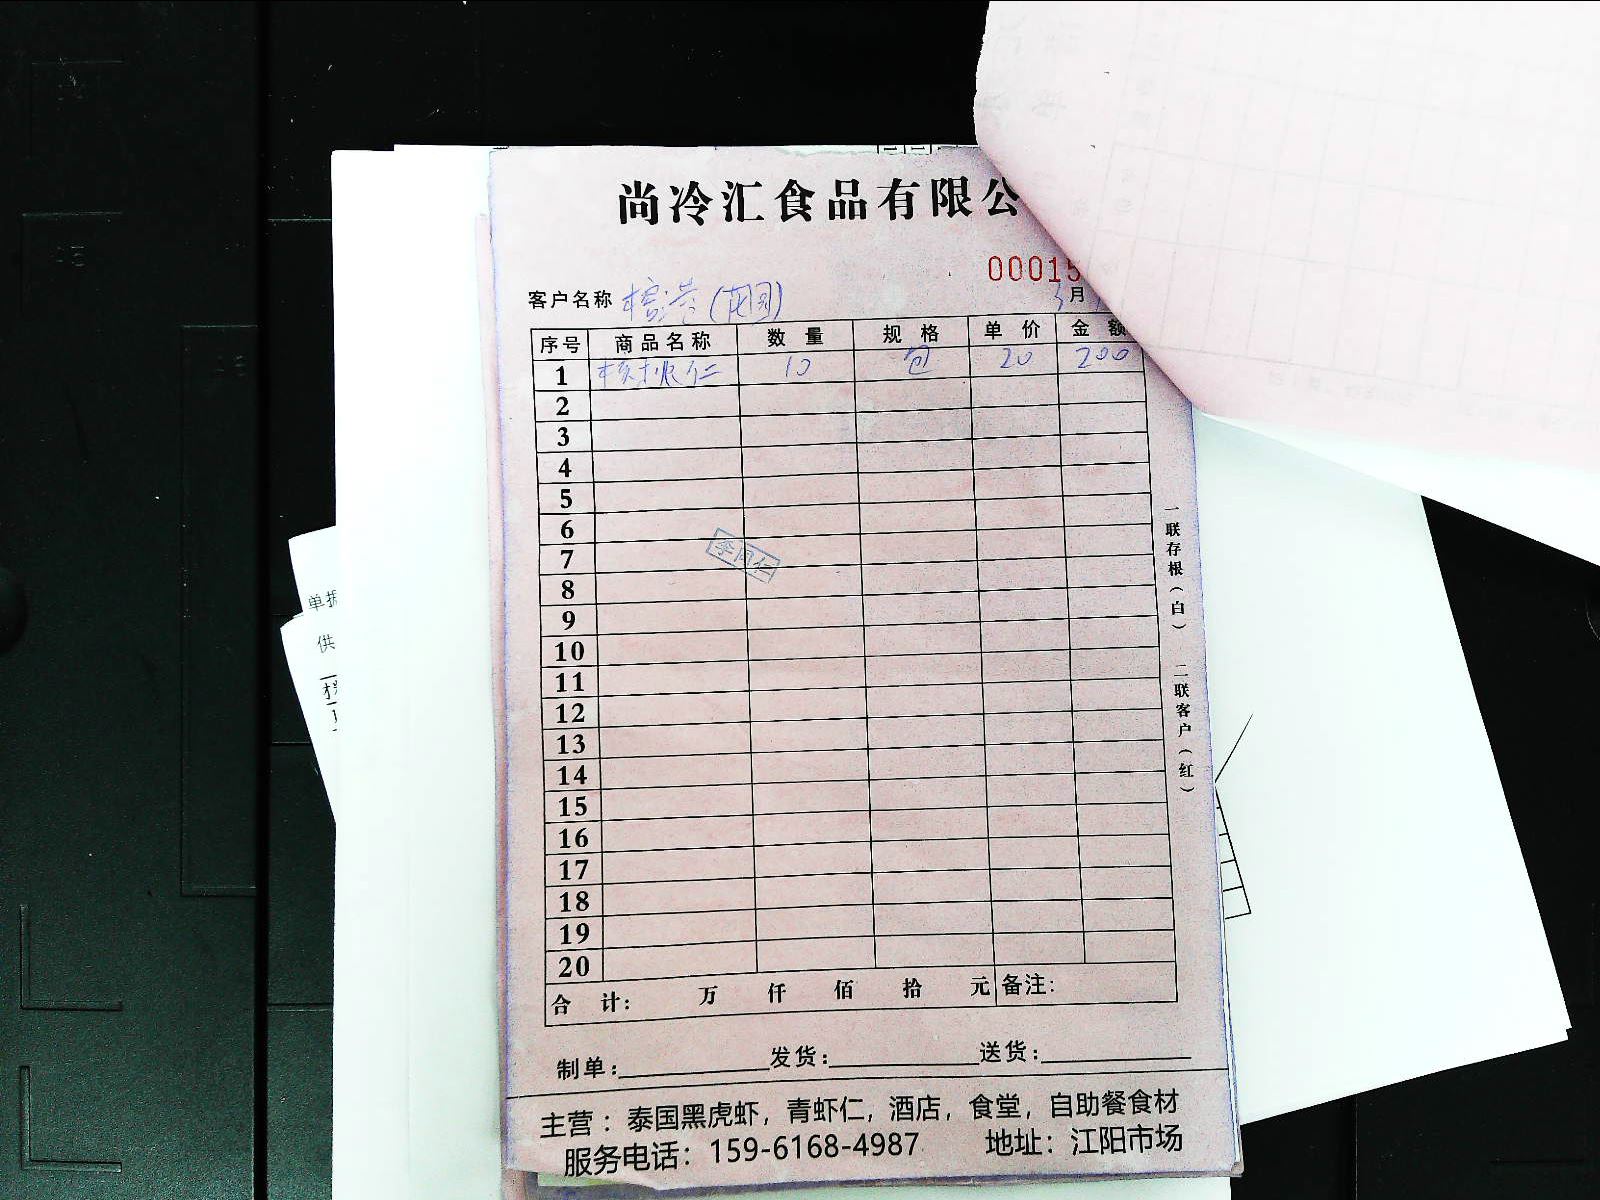 尚冷汇食品有限公
00015
客户名称 (花园) 月
序号 商品名称 数量 规格 单价 金额
1 核桃仁 10 包 20 200
2
3
4
5
6
李同仁
7
8
9
10
11
12
13
14
15
16
17
18
19
20
合计: 万 仟 佰 拾 元 备注:
制单: 发货: 送货:
主营：泰国黑虎虾，青虾仁，酒店，食堂，自助餐食材
服务电话：159-6168-4987 地址：江阳市场
一联存根（白） 二联客户（红）
单据
供